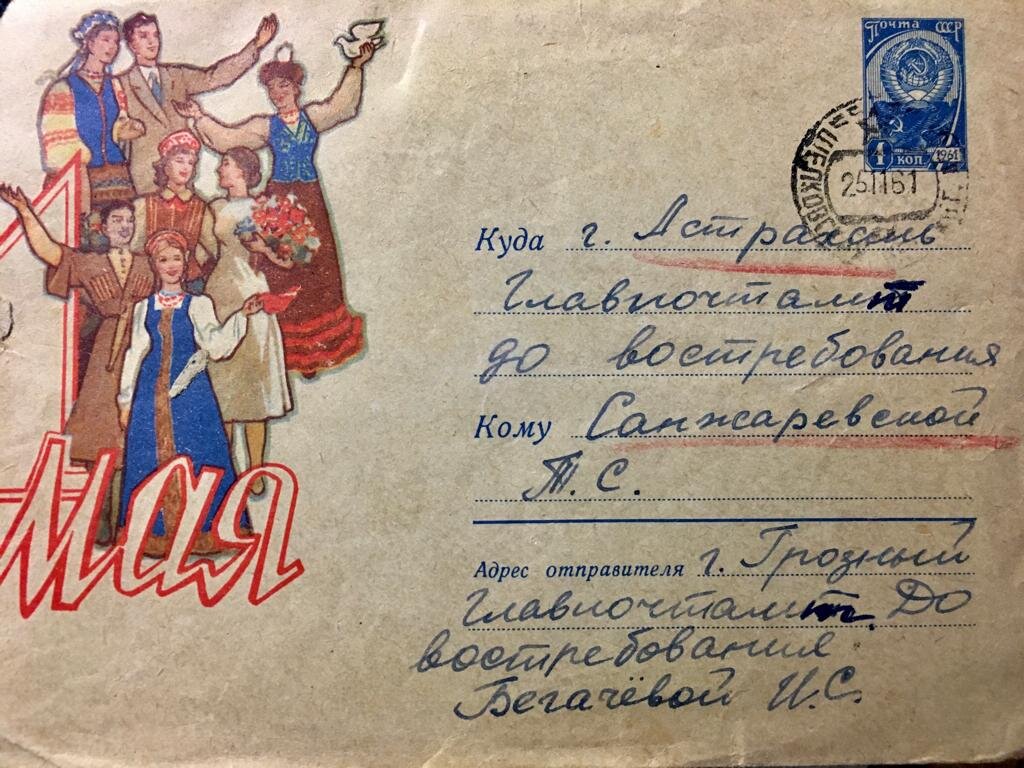 1
Мая
Почта СССР
4 коп 1961
ЩЕЛКОВО
251161
Куда г. Астрахань
Главпочтамт
до востребования
Кому Санжаревской
Т. С.
Адрес отправителя г. Грозный
Главпочтамт. До
востребования
Бегачёвой И.С.